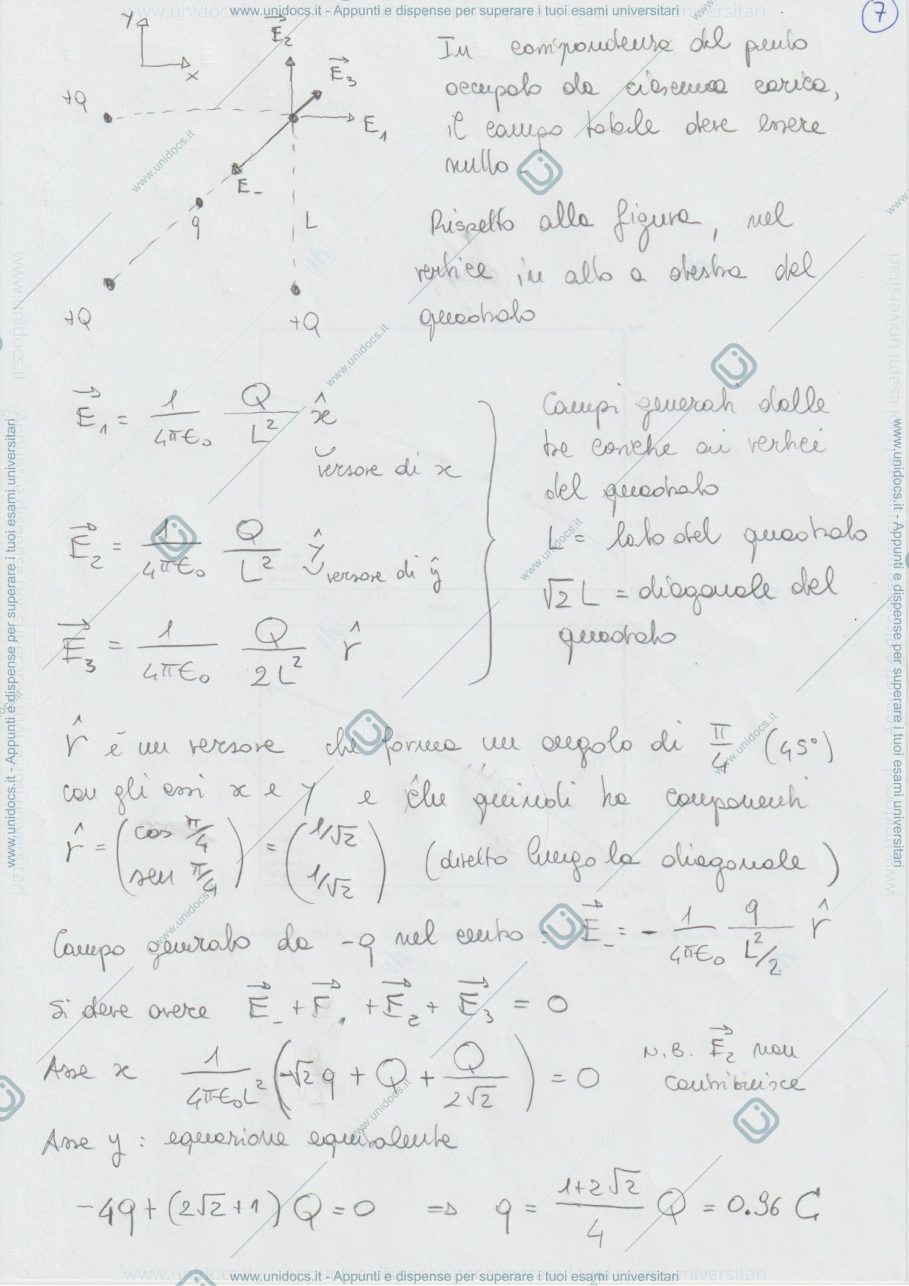 www.unidocs.it - Appunti e dispense per superare i tuoi esami universitari
7
Y
x
E⃗₂
E⃗₃
+Q
E₁
E₋
q
L
+Q
+Q
In corrispondenza del punto
occupato da ciascuna carica,
il campo totale deve essere
nullo.
Rispetto alla figura, nel
vertice in alto a destra del
quadrato
E⃗₁ = 1/4πε₀ Q/L² x̂
versore di x
E⃗₂ = 1/4πε₀ Q/L² ŷ
versore di ŷ
E⃗₃ = 1/4πε₀ Q/2L² r̂
Campi generati dalle
tre cariche ai vertici
del quadrato
L = lato del quadrato
√2 L = diagonale del
quadrato
r̂ è un versore che forma un angolo di π/4 (45°)
con gli assi x e y e che quindi ha componenti
r̂ = (cos π/4 sen π/4) = (1/√2 1/√2) (diretto lungo la diagonale)
Campo generato da -q nel centro : E⃗₋ = - 1/4πε₀ q/L²/2 r̂
Si deve avere E⃗₋ + E⃗₁ + E⃗₂ + E⃗₃ = 0
Asse x 1/4πε₀L² (-√2 q + Q + Q/2√2) = 0
N.B. E⃗₂ non
contribuisce
Asse y : equazione equivalente
-4q + (2√2+1) Q = 0 ⇒ q = 1+2√2/4 Q = 0.96 C
www.unidocs.it - Appunti e dispense per superare i tuoi esami universitari